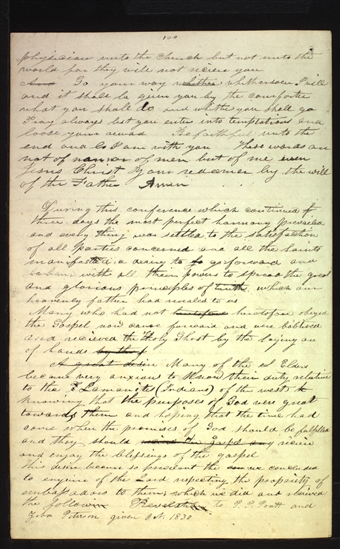 physician unto the church but not unto the
world for they will not receive you
Go your way whithersoever I will
and it shall be given you by the comforter
what you shall do and whither you shall go
Pray always lest you enter into temptation and
loose your reward Be faithful unto the
end and lo I am with you These words are
not of man nor of men but of me even
Jesus Christ your redeemer by the will
of the Father Amen
During this conference which continued
three days the most perfect harmony prevailed
and every thing was settled to the satisfaction
of all parties concerned and all the saints
manifested a desire to go forward and
labour with all their powers to spread the great
and glorious principles of truth which our
heavenly father had revealed to us
Many who had not heretofore obeyed
the Gospel, now came forward and were baptised
and received the Holy Ghost by the laying on
of hands by the
A great desire Many of the Elders
became very anxious to know their duty relative
to the Lamanites (Indians) of the west
knowing that the purposes of God were great
towards them and hoping that the time had
come when the promises of God should be fulfilled
and they should receive
and enjoy the blessings of the gospel
this desire became so prevalent the we concluded
to enquire of the Lord respecting the propriety of
embassadors to them, which we did and received
the following Revelation to P. P. Pratt and
Ziba Peterson given Oct. 1830